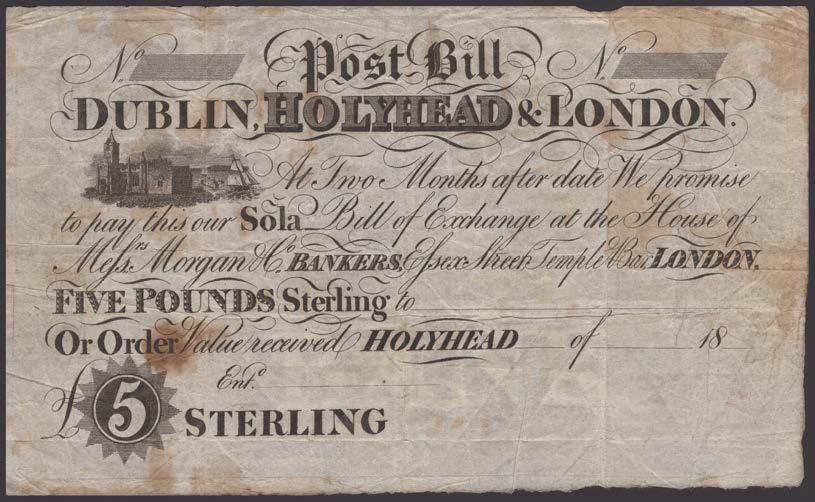 No Post Bill No
DUBLIN, HOLYHEAD & LONDON.
At Two Months after date We promise
to pay this our Sola Bill of Exchange at the House of
Messrs Morgan & Co. BANKERS, Essex Street, Temple Bar, LONDON,
FIVE POUNDS Sterling to
Or Order Value received HOLYHEAD of 18
Entd.
£5 STERLING